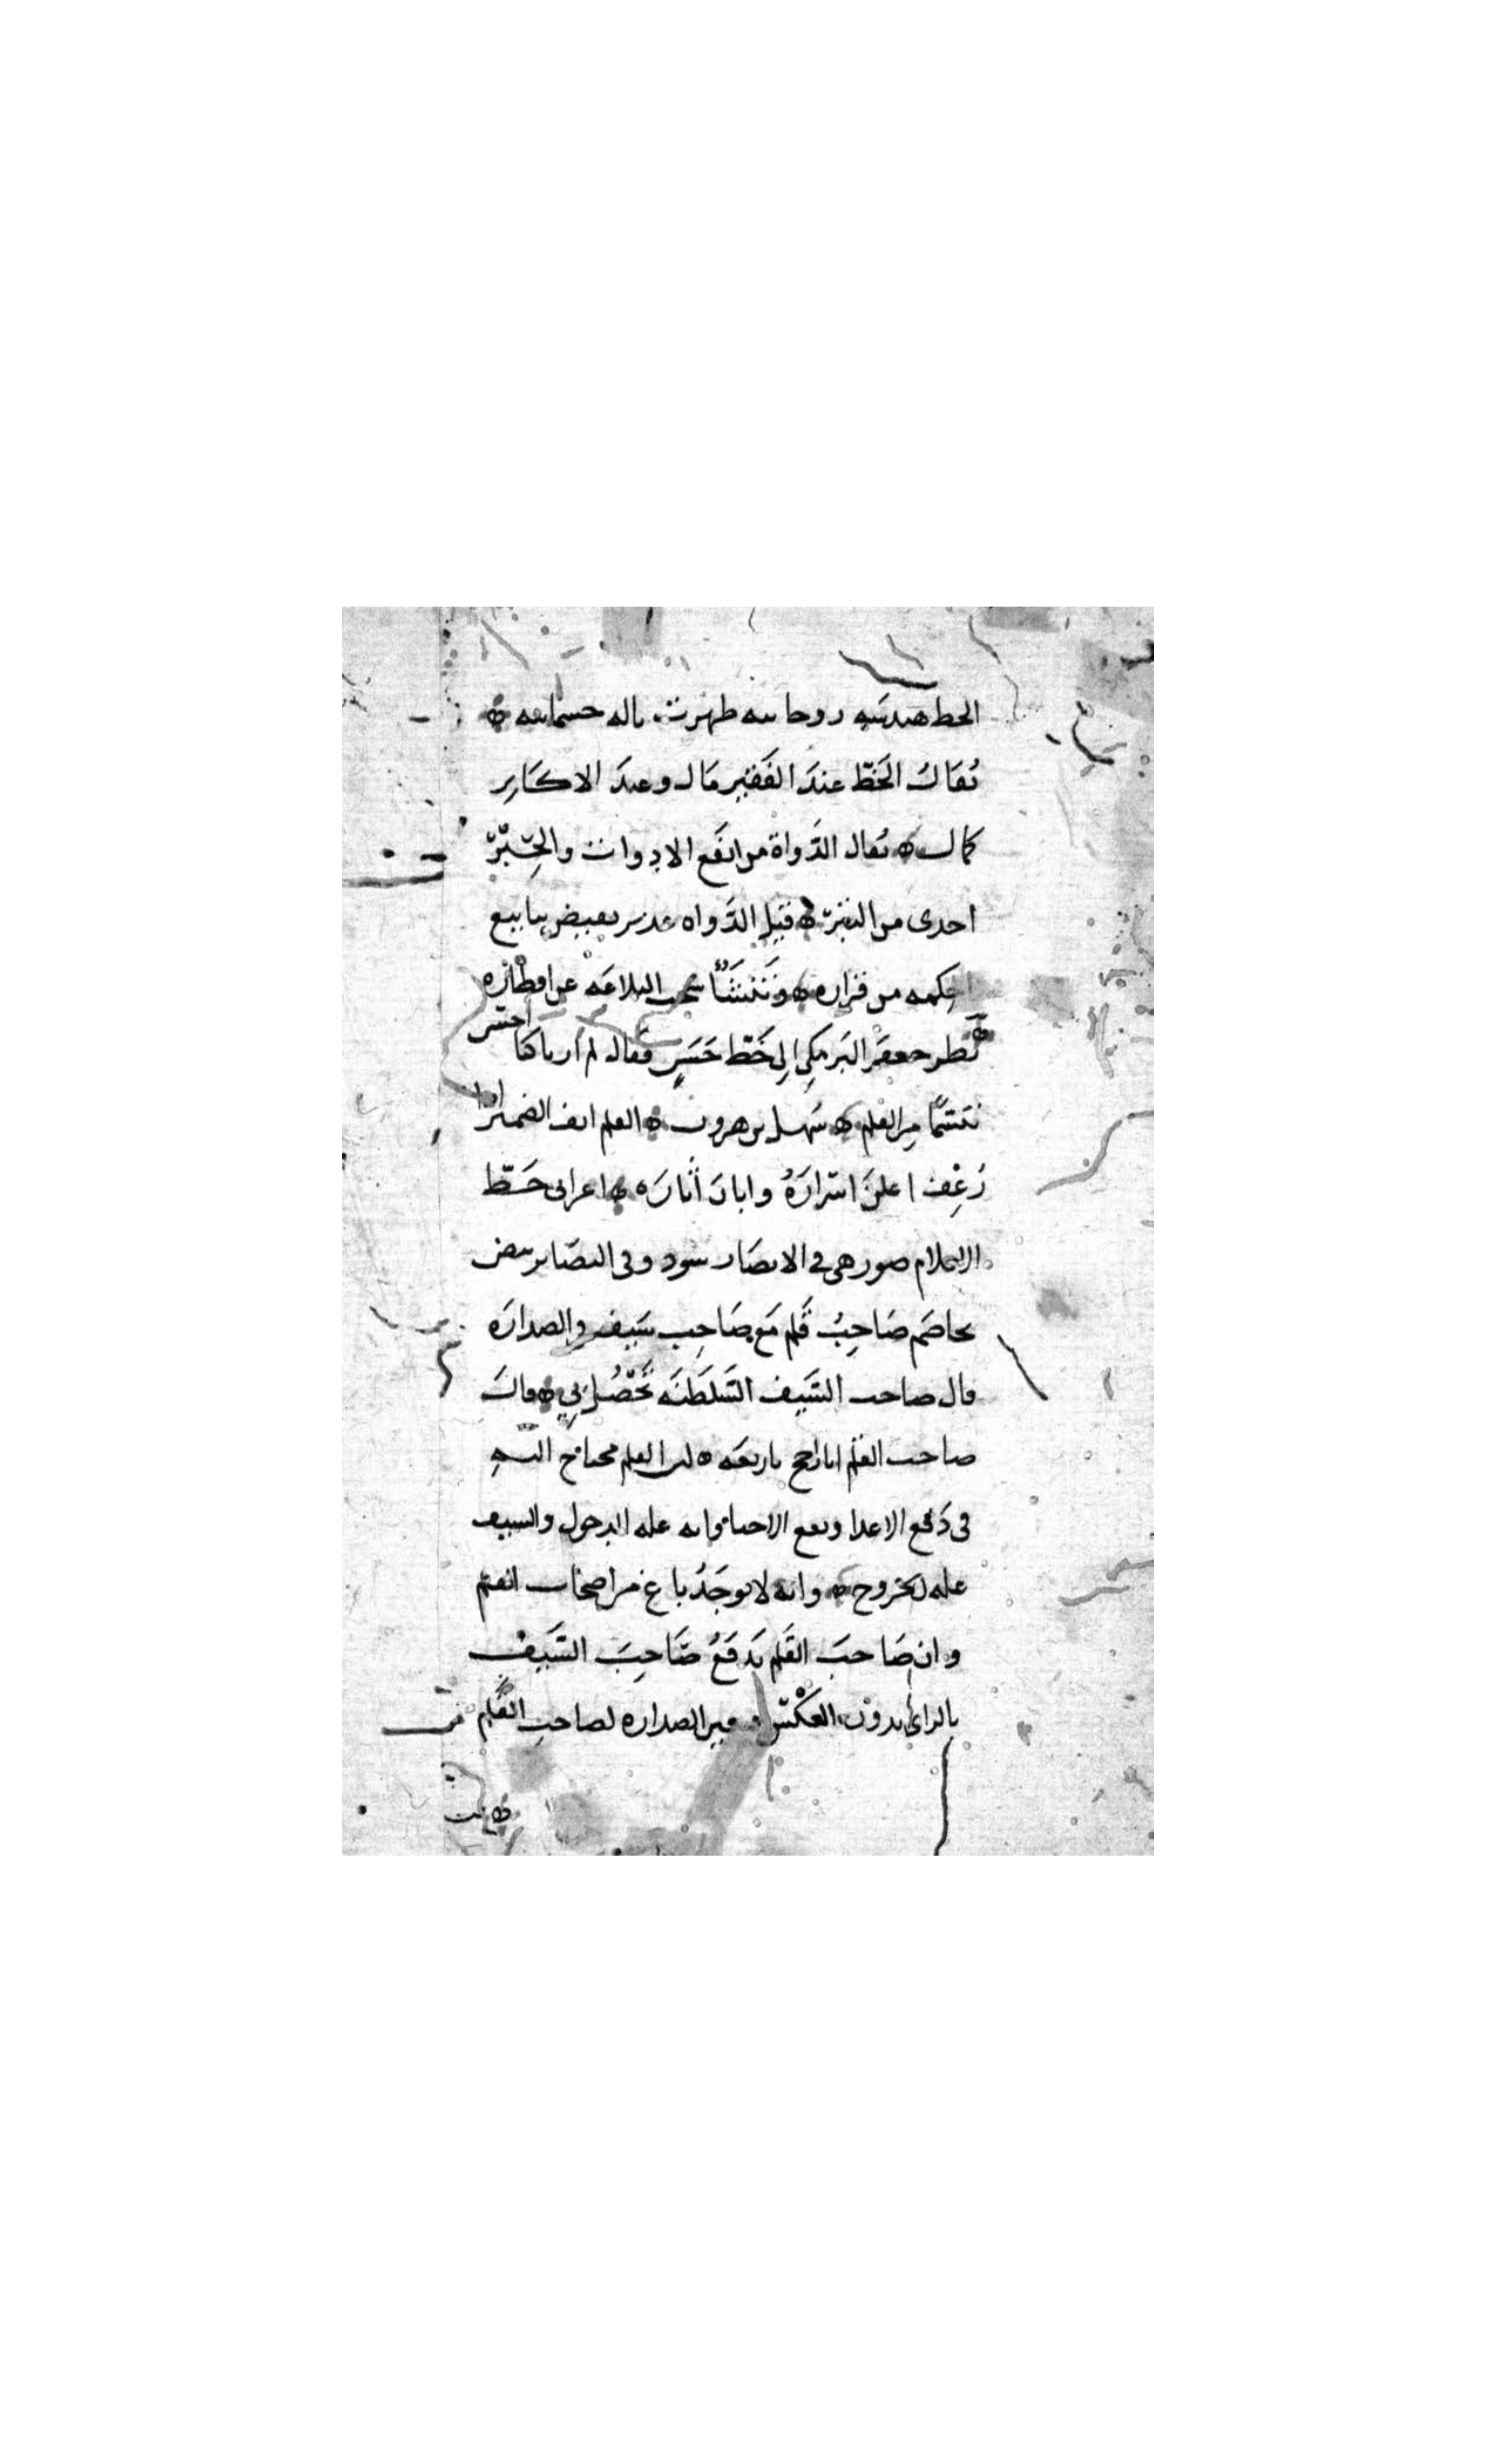 الخط هندسة روحانية ظهرت بالة جسمانية ه
يُقَال الخَطّ عندَ الفَقيرِ مَال وعندَ الاكَابِر
كمال ه يُقال الدَّواة من انفَع الادوات والحِبْرُ
اجدى من التبر ه قيل الدَّواه غدير يفيض ينابيع
الحِكمه من قراره ه وتنشأ سحب البلاغَه عن اقطاره
نظر جعفر البَرمكي الى خَطّ حَسَنٍ فقال لم ار باكيا احسن
تبسّمًا من القلم ه سَهل بن هرون ه القلم انف الضمير اذا
رَعِف اعلنَ اسْرارَهُ وابانَ اثارَه ه اعرابى خَطّ
الاقلام صور هى فى الابصَار سود وفى البصَاير بيض
تخاصَم صَاحِبُ قَلم مَع صَاحِب سَيف والصدارَه
قال صاحب السَّيف السَّلطَنَه تَحْصُل بِي ه وقال
صاحب القلم انا راجح باربعَه ه لان القلم محتاج اليه
فى دَفع الاعدا ونفع الاحبا وانه عليه الدخول والسيف
عليه الخروج ه وانه لا يوجَدُ باغ من اصحاب القلم
وان صَاحبَ القَلم يَدفَعُ صَاحِبَ السَّيف
بالراى بدون العَكْس فهى الصداره لصاحب القَلم
ه تمت